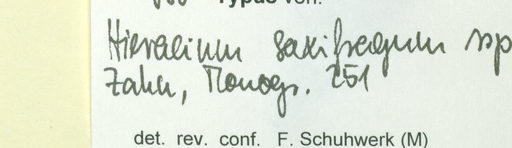 Typus von:
Hieracium saxifragum ssp
Zahn, Monogr. 251
det. rev. conf. F. Schuhwerk (M)